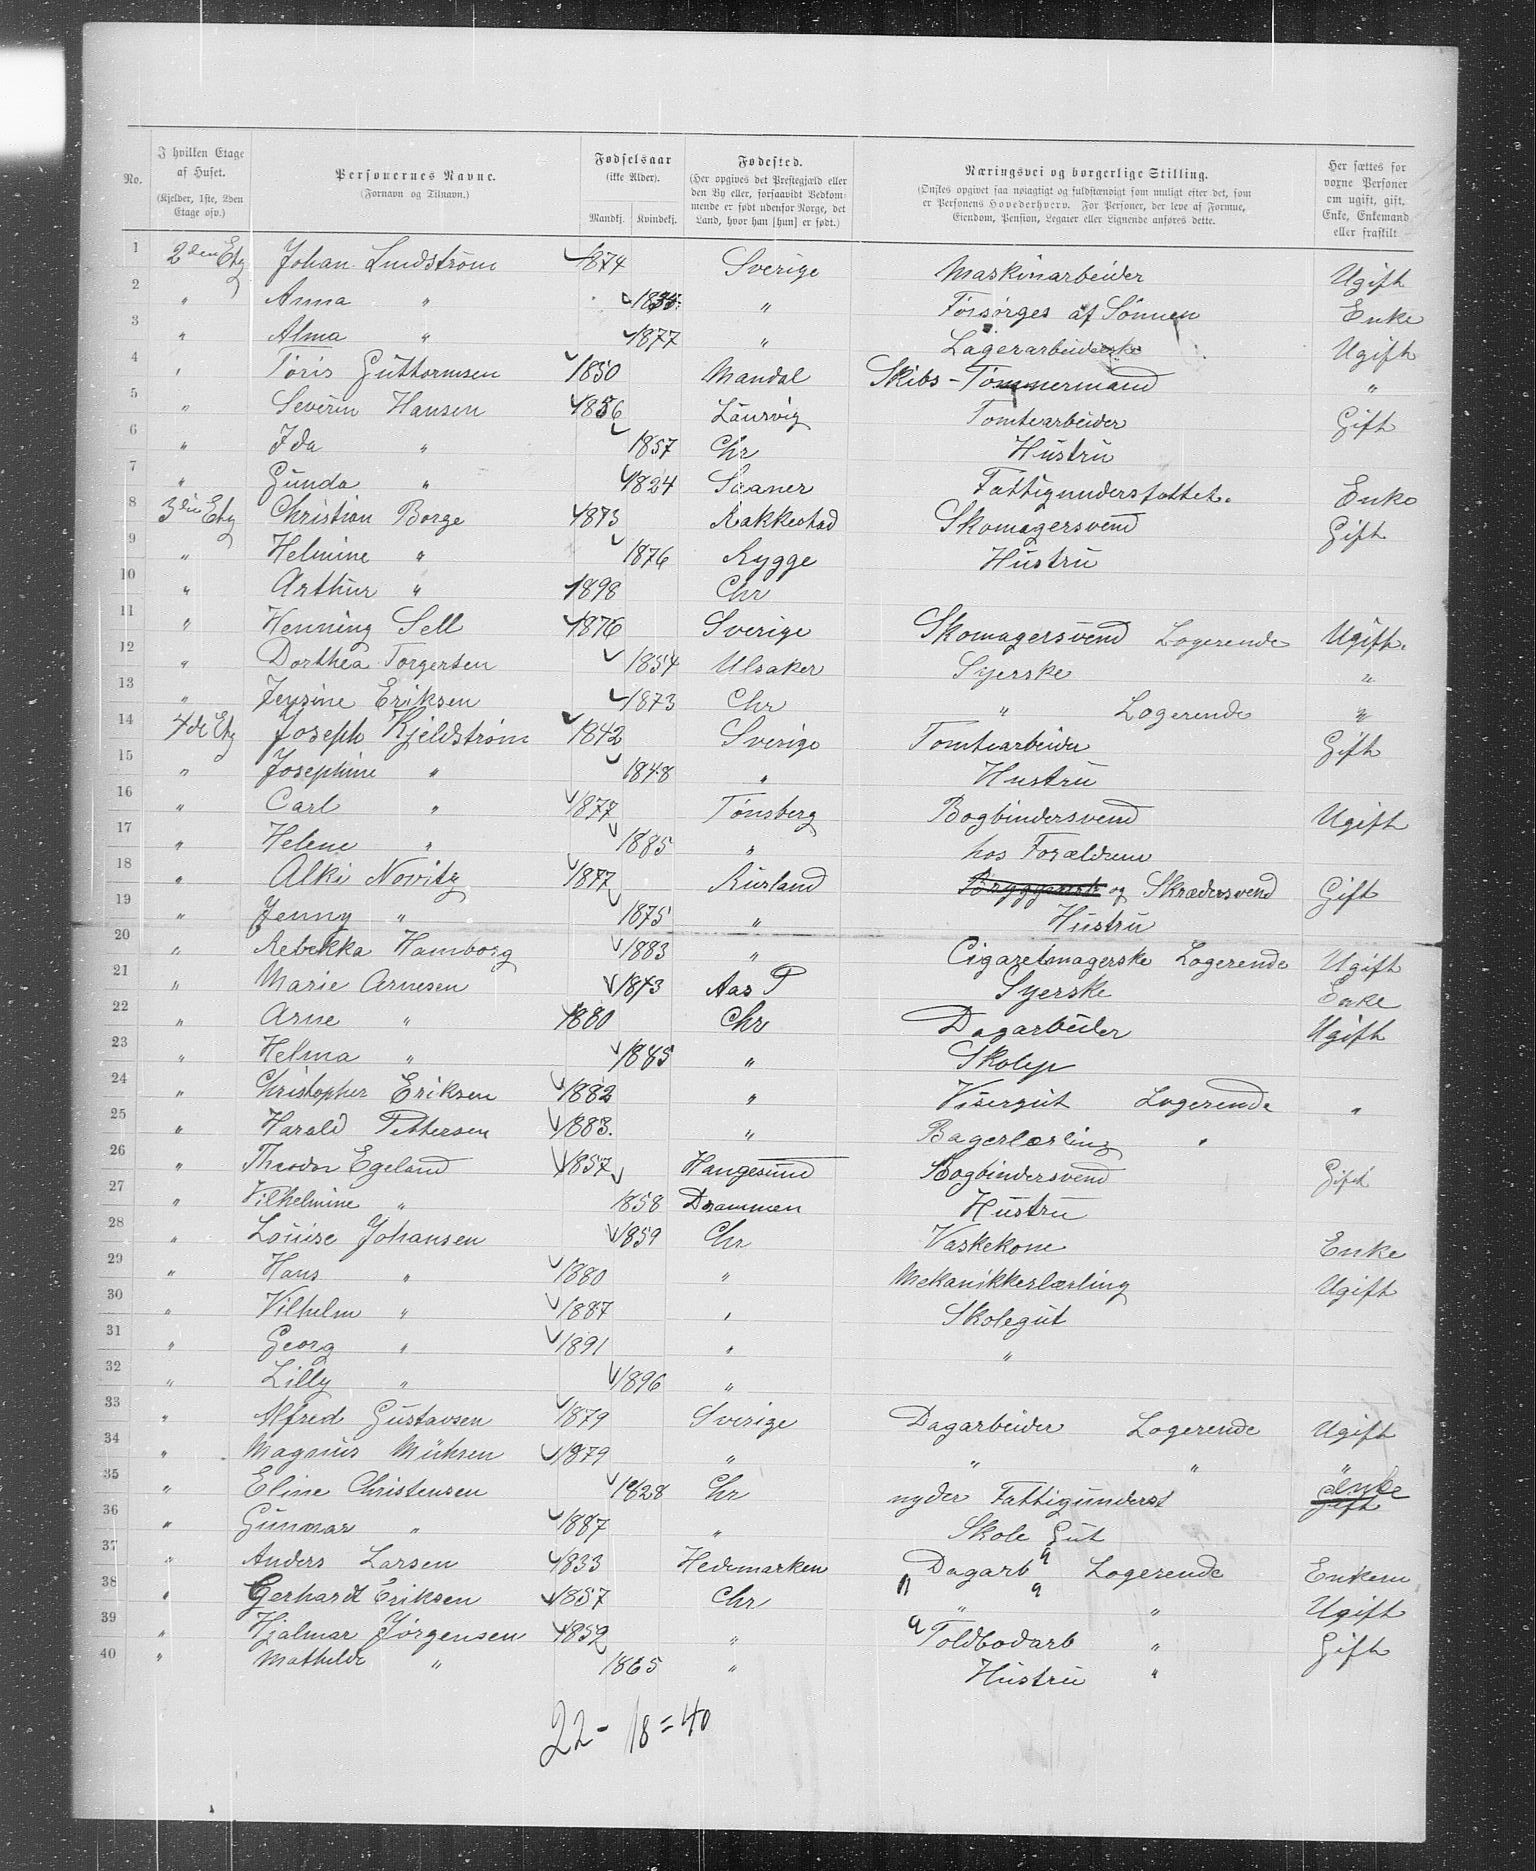 No.
I hvilken Etage af Huset. (Kjelder, 1ste, 2den Etage osv.)
Personernes Navne. (Fornavn og Tilnavn.)
Fødselsaar (ikke Alder). Mandkj. Kvindekj.
Fødested. (Her opgives det Prestegjæld eller den By eller, forsaavidt Vedkommende er født udenfor Norge, det Land, hvor han [hun] er født.)
Næringsvei og borgerlige Stilling. (Ønskes opgivet saa nøiagtigt og fuldstændigt som muligt efter det, som er Personens Hovederhverv. For Personer, der leve af Formue, Eiendom, Pension, Legater eller Lignende anføres dette.
Her sættes for voxne Personer om ugift, gift, Enke, Enkemand eller fraskilt
1 2den Etg Johan Lindstrøm 1874 Sverige Maskinarbeider Ugift
2 " Anna " " Forsørges af Sönnen Enke
3 " Alma " 1877 " Lagerarbeiderske Ugift
4 " Töris Guttormsen 1850 Mandal Skibs-Tömmermand "
5 " Severin Hansen 1856 Laurvig Tomtearbeider Gift
6 " Ida " 1857 Chr Hustru
7 " Gunda " 1824 Saaner Fattigunderstöttet. Enke
8 3die Etg Christian Borge 1873 Rakkestad Skomagersvend Gift
9 " Helmine " 1876 Rygge Hustru
10 " Arthur " 1898 Chr
11 " Henning Sell 1876 Sverige Skomagersvend Logerende Ugift.
12 " Dorthea Torgersen 1854 Ulsaker Syerske "
13 " Jensine Eriksen 1873 Chr " Logerende "
14 4de Etg Joseph Kjeldstrøm 1842 Sverige Tomtearbeider Gift
15 " Josephine " 1848 " Hustru
16 " Carl " 1877 Tønsberg Bogbindersvend Ugift
17 " Helene " 1885 " hos Forældrene
18 " Alki Novitz 1877 Kurland og Skrædersvend Gift
19 " Jenny " 1875 " Hustru
20 " Rebekka Hamborg 1883 " Cigaretmagerske Logerende Ugift
21 " Marie Arnesen 1843 Aas P Syerske Enke
22 " Arne " 1880 Chr Dagarbeider Ugift
23 " Helma " 1885 " Skolep
24 " Christopher Eriksen 1882 " Visergut Logerende "
25 " Harald Pettersen 1883. " Bagerlærling "
26 " Theodor Egeland 1857 Haugesund Bogbindersvend Gift
27 " Vilhelmine " 1858 Drammen Hustru
28 " Louise Johansen 1859 Chr Vaskekone Enke
29 " Hans " 1880 " Mekanikkerlærling Ugift
30 " Vilhelm " 1887 " Skolegut
31 " Georg " 1891 " "
32 " Lilly " 1896 "
33 " Alfred Gustavsen 1879 Sverige Dagarbeider Logerende Ugift
34 " Magnus 1879 " " " "
35 " Eline Christensen 1828 Chr nyder Fattigunderst Gift enke
36 " Gunnar " 1887 " Skole Gut
37 " Anders Larsen 1833 Hedemarken Dagarb Logerende Enkem
38 " Gerhard Eriksen 1857 Chr " " Ugift
39 " Hjalmar Jörgensen 1852 " Toldbodarb " Gift
40 " Mathilde " 1865 " Hustru "
22 - 18 = 40